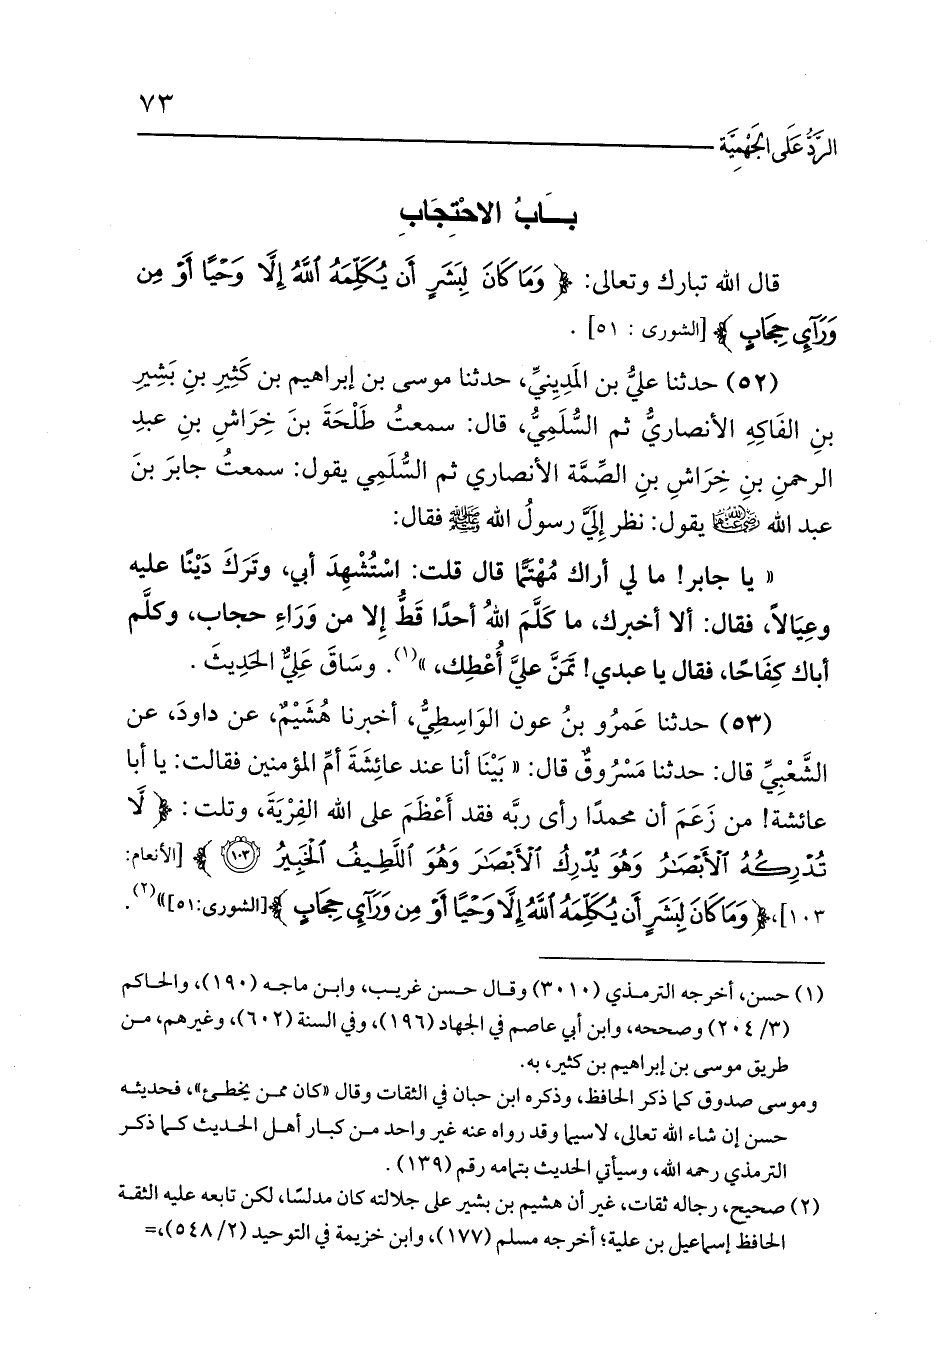 ٧٣
الرَّدُّ عَلَى الجَهْمِيَّة
بــابُ الاحْتِجَابِ
قال الله تبارك وتعالى: ﴿ وَمَا كَانَ لِبَشَرٍ أَن يُكَلِّمَهُ ٱللَّهُ إِلَّا وَحْيًا أَوْ مِن
وَرَآئِ حِجَابٍ ﴾ [الشورى : ٥١] .
(٥٢) حدثنا عليُّ بن المَدِينِيِّ، حدثنا موسى بن إبراهيم بن كَثِيرِ بنِ بَشِيرِ
بنِ الفَاكِهِ الأنصاريُّ ثم السُّلَمِيُّ، قال: سمعتُ طَلْحَةَ بنَ خِرَاشِ بنِ عبدِ
الرحمنِ بنِ خِرَاشِ بنِ الصِّمَّة الأنصاري ثم السُّلَمِي يقول: سمعتُ جابرَ بنَ
عبد الله رضي الله عنهما يقول: نظر إِلَيَّ رسولُ الله ﷺ فقال:
« يا جابر! ما لي أراك مُهْتَمًّا قال قلت: اسْتُشْهِدَ أبي، وتَرَكَ دَيْنًا عليه
وعِيَالاً، فقال: ألا أخبرك، ما كَلَّمَ اللهُ أحدًا قَطُّ إلا من وَرَاءِ حجاب، وكلَّم
أباك كِفَاحًا، فقال يا عبدي! تَمَنَّ عليَّ أُعْطِك، »(١). وسَاقَ عَلِيٌّ الحَدِيثَ .
(٥٣) حدثنا عَمرُو بنُ عون الوَاسِطِيُّ، أخبرنا هُشَيْمٌ، عن داودَ، عن
الشَّعْبِيِّ قال: حدثنا مَسْرُوقٌ قال: « بَيْنَا أنا عند عائِشَةَ أمِّ المؤمنين فقالت: يا أبا
عائشة! من زَعَمَ أن محمدًا رأى ربَّه فقد أَعْظَمَ على الله الفِرْيَةَ، وتلت: ﴿ لَّا
تُدْرِكُهُ ٱلْأَبْصَٰرُ وَهُوَ يُدْرِكُ ٱلْأَبْصَٰرَ وَهُوَ اللَّطِيفُ الْخَبِيرُ ١٠٣ ﴾ [الأنعام:
١٠٣]، ﴿ وَمَا كَانَ لِبَشَرٍ أَن يُكَلِّمَهُ ٱللَّهُ إِلَّا وَحْيًا أَوْ مِن وَرَآئِ حِجَابٍ ﴾[الشورى:٥١]»(٢).
(١) حسن، أخرجه الترمذي (٣٠١٠) وقال حسن غريب، وابن ماجه (١٩٠)، والحاكم
(٣/ ٢٠٤) وصححه، وابن أبي عاصم في الجهاد (١٩٦)، وفي السنة (٦٠٢)، وغيرهم، من
طريق موسى بن إبراهيم بن كثير، به.
وموسى صدوق كما ذكر الحافظ، وذكره ابن حبان في الثقات وقال «كان ممن يخطئ»، فحديثه
حسن إن شاء الله تعالى، لاسيما وقد رواه عنه غير واحد من كبار أهل الحديث كما ذكر
الترمذي رحمه الله، وسيأتي الحديث بتمامه رقم (١٣٩) .
(٢) صحيح، رجاله ثقات، غير أن هشيم بن بشير على جلالته كان مدلسًا، لكن تابعه عليه الثقة
الحافظ إسماعيل بن علية؛ أخرجه مسلم (١٧٧)، وابن خزيمة في التوحيد (٢/ ٥٤٨)،=